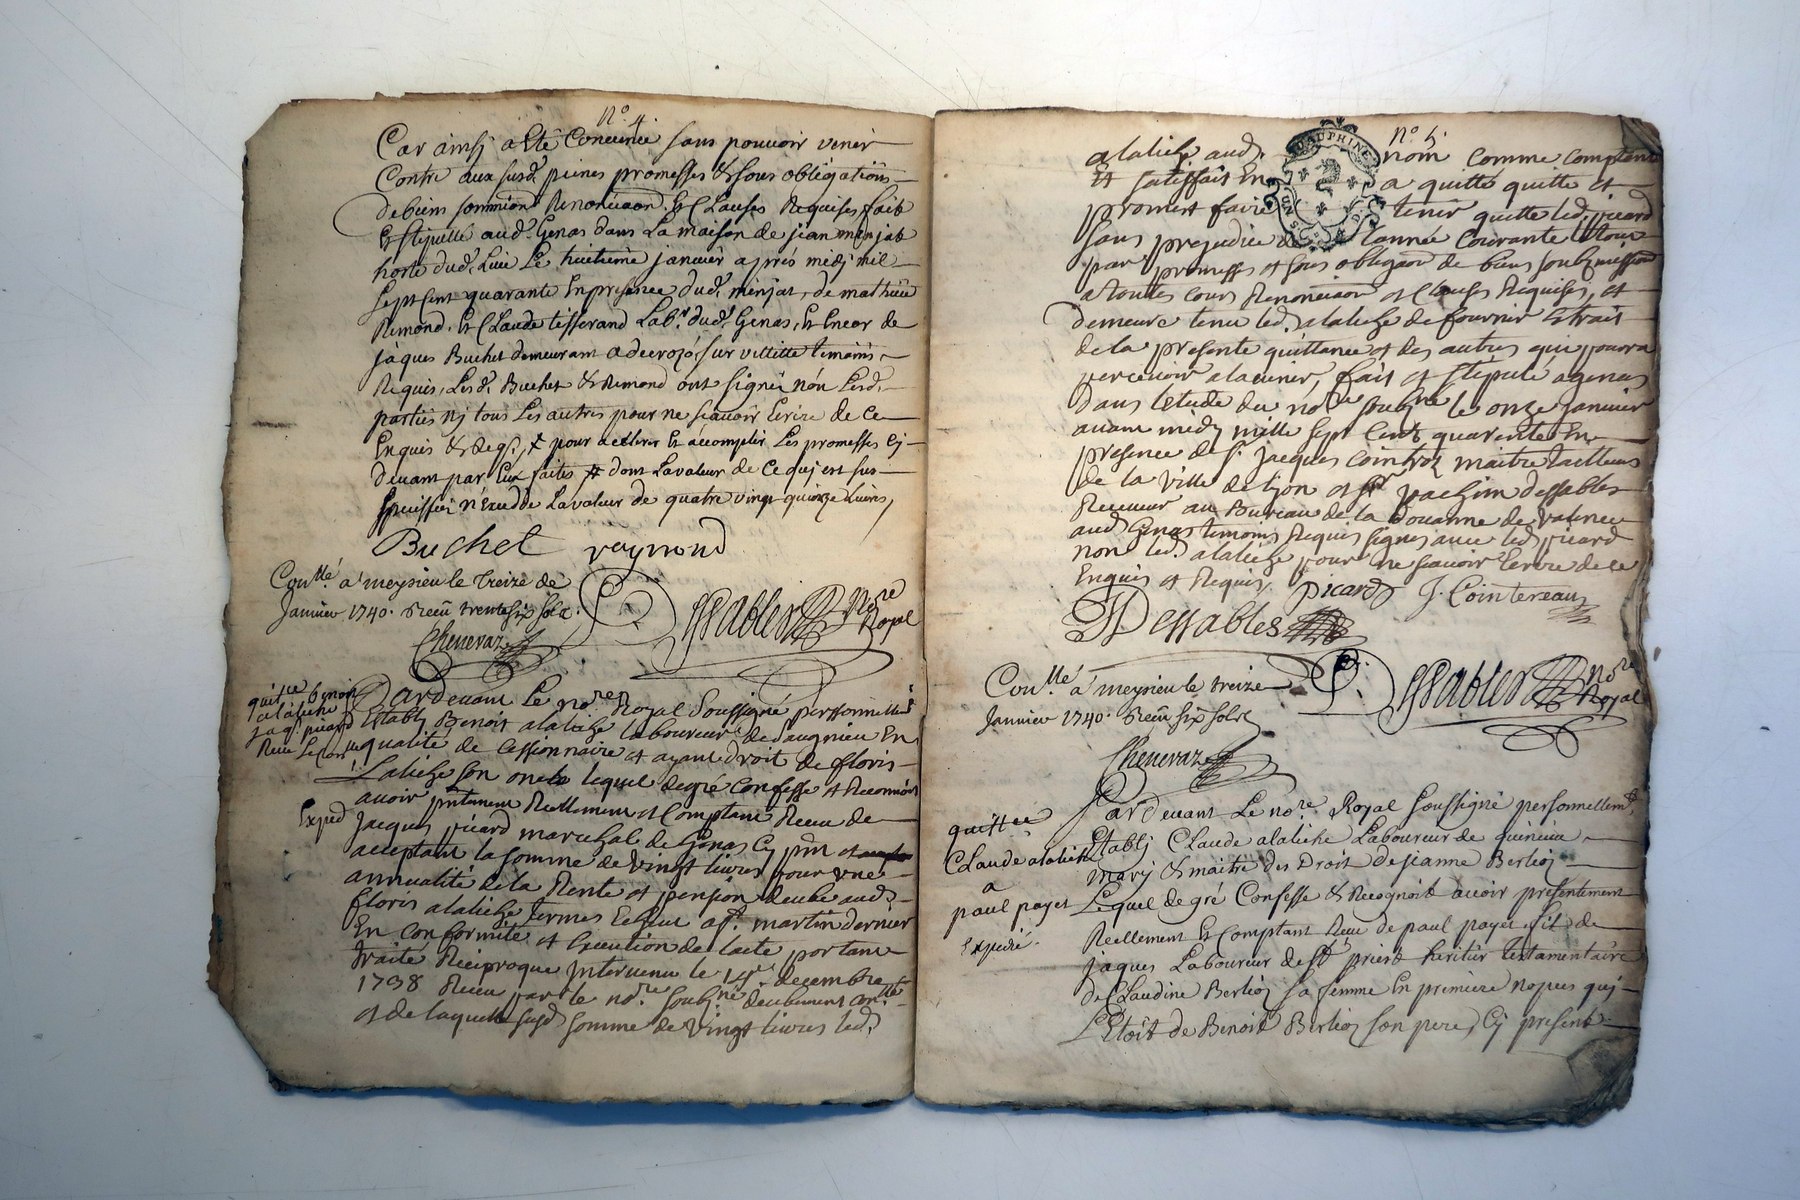 n° 4.
Car ainsi a Eté Convenue sans pouvoir venir
Contre aux susd. peines promesses & sous obligations
de biens soumiond Renonciaon & Clauses Requises fait
Et stipullé aud. Genas dans La maison de jean minjat
hoste dud. Lieu Le huitieme janvier après medj mil
sept Cent quarante En presence dud. minjat, de mathieu
Remond, Et Claude tisserand Lab.r dud. Genas, Et Encor de
jâques Buchet demeurant a decrozo sur villette temoins
Requis, Lesd. Buchet & Remond ont signé nón Lesd.
partiës nj tous Les autres pour ne sçauoir Ecrire de Ce
Enquis & Req.s, pour acelerer Et accomplir Les promesses Cj
deuant par Eux faites dont La valeur de Ce quj est sus
n'Excedde La valeur de quatre vingt quinze Livres,
Buchet raymond
Con.llé a meysieu le treize de
Janvier 1740. Receu trente six sols.
Dessables No.re Royal
Cheneraz
quit.ce benoit
alatiche
jaq. picard
Expéd
Pardevant Le no.re Royal Soussigné personnellem.t
Etablj Benoit alatiche laboureur de Saugnieu En
qualité de Cessionnaire et ayant droit de floris
alatiche son oncle lequel de gré Confesse et Reconnoit
avoir pñtement Reellement et Comptant Receu de
Jacques picard marechal de Genas Cy pñt et
acceptant la somme de vingt livres pour vne
annualité de la Rente et pension deube aud.
floris alatiche termes Echeue a s.t martin dernier
En conformité et Execution de lacte portant
traité Reciproque Intervenu le decembre
1738 Receu par le no.re soub.né deubement con.llé
et de laquelle susd somme de vingt livres led.
n° 5.
DAUPHINE
alatiche aud. nom comme comptent
Et satisfait En a quitté quitte et
promest faire tenir quitte led. picard
sans prejudice de lannée Courante le tout
par promesses et sous obligaon de biens soubzmission
a toutes cours Renonciaon et Clauses Requises, et
demeure tenu led. alatiche de fournir Extrait
de la presente quittance et des autres que poura
percevoir a lavenir, fait et stipulé a genas
dans l'etude du no.re soub.né le onze Janvier
avant midy mille sept Cent quarente En
presence de s.r jacques cointroz maitre tailleur
de la ville de lyon et s.r joachim dessables
Receveur au Bureau de la Douanne de valence
aud. Genas temoins Requis signes avec led. picard
non led. alatiche pour ne scavoir Ecrire de ce
Enquis et Requis,
Picard J. Cointereau
Dessables
Con.llé a meysieu le treize
Janvier 1740. Receu six sols
Dessables No.re Royal
Cheneraz
quittce
Claude alatiche
a
paul payet
Expedié.
Pardevant Le no.re Royal Soussigné personnellem.t
Etablj Claude alatiche Laboureur de
marj & maitre des Droit de jeanne Berlioz
Lequel de gré Confesse & Recognoit avoir presentement
Reellement Et Comptant Receu de paul payet fil de
jaques Laboureur de S.t priest heritier testamentaire
de Claudine Berlioz sa femme En premiere nopces quj
L'Etoit de Benoit Berlioz son pere, Cj present